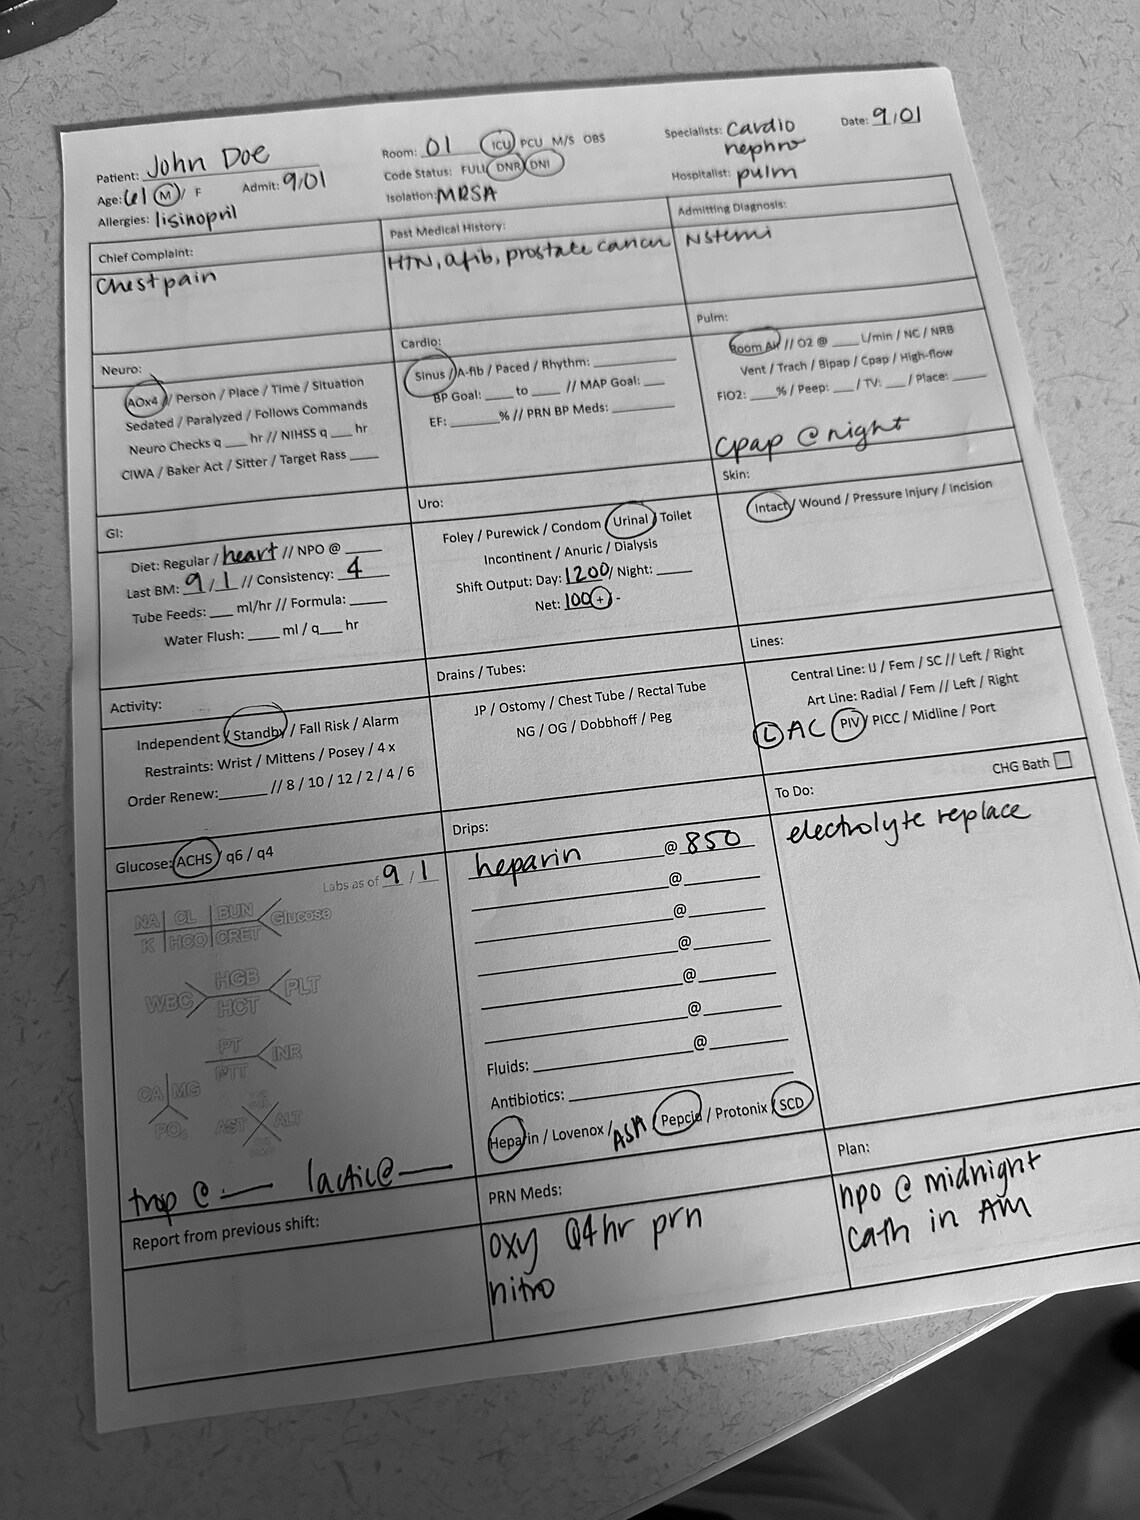 Patient: John Doe
Room: 01 ICU PCU M/S OBS
Specialists: Cardio
nephro
Date: 9/01
Age: 61 M / F Admit: 9/01
Code Status: FULL DNR DNI
Hospitalist: pulm
Allergies: lisinopril
Isolation: MRSA
Chief Complaint:
Chest pain
Past Medical History:
HTN, afib, prostate cancer
Admitting Diagnosis:
Nstemi
Neuro:
AOx4 // Person / Place / Time / Situation
Sedated / Paralyzed / Follows Commands
Neuro Checks q ___ hr // NIHSS q ___ hr
CIWA / Baker Act / Sitter / Target Rass ____
Cardio:
Sinus / A-fib / Paced / Rhythm: ____
BP Goal: ____ to ____ // MAP Goal: ___
EF: ____% // PRN BP Meds: ____
Pulm:
Room Air // O2 @ ____ L/min / NC / NRB
Vent / Trach / Bipap / Cpap / High-flow
FiO2: ___% / Peep: ___ / TV: ___ / Place: ____
Cpap @ night
GI:
Diet: Regular / heart // NPO @ ____
Last BM: 9 / 1 // Consistency: 4
Tube Feeds: ___ ml/hr // Formula: ____
Water Flush: ____ ml / q___ hr
Uro:
Foley / Purewick / Condom / Urinal / Toilet
Incontinent / Anuric / Dialysis
Shift Output: Day: 1200 / Night: ____
Net: 100 + / -
Skin:
Intact / Wound / Pressure Injury / Incision
Activity:
Independent / Standby / Fall Risk / Alarm
Restraints: Wrist / Mittens / Posey / 4 x
Order Renew: ____ // 8 / 10 / 12 / 2 / 4 / 6
Drains / Tubes:
JP / Ostomy / Chest Tube / Rectal Tube
NG / OG / Dobbhoff / Peg
Lines:
Central Line: IJ / Fem / SC // Left / Right
Art Line: Radial / Fem // Left / Right
L AC PIV / PICC / Midline / Port
CHG Bath
Glucose: ACHS / q6 / q4
Labs as of 9 / 1
NA CL BUN Glucose
K HCO CRET
WBC HGB PLT
HCT
PT INR
PTT
CA MG
PO₄
AST ALT
trop @ — lactic @ —
Drips:
heparin @ 850
@
@
@
@
@
@
Fluids:
Antibiotics:
Heparin / Lovenox / ASA / Pepcid / Protonix / SCD
To Do:
electrolyte replace
Report from previous shift:
PRN Meds:
oxy Q4hr prn
nitro
Plan:
npo @ midnight
cath in AM